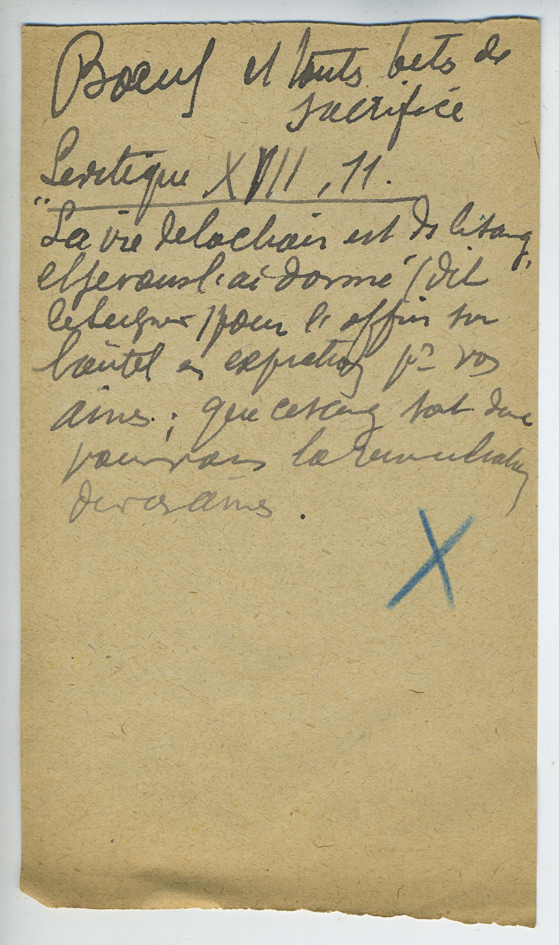 Bœuf et touts bets de
sacrifice
Levitique XVII, 11.
"La vie de la chair est ds le sang,
et je vous l'ai donné" (dit
le Seigneur) pour l'offrir sur
l'autel en expiation pr vos
âmes.; que ce sang soit donc
pour vous la
de vos âmes.
X